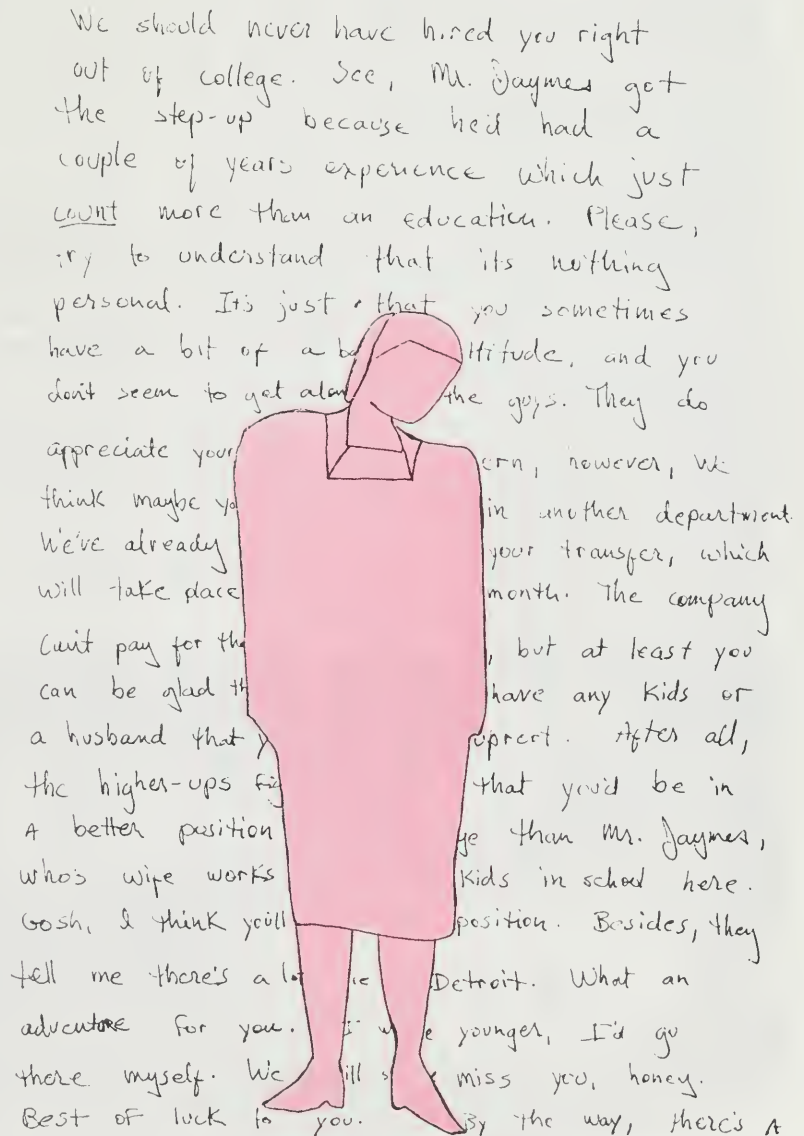 We should never have hired you right
out of college. See, Mr. Jaymes got
the step-up because he'd had a
couple of years experience which just
count more than an education. Please,
try to understand that its nothing
personal. It's just that you sometimes
have a bit of a ba ttitude, and you
don't seem to get alon the guys. They do
appreciate your ern, however, we
think maybe yo in another department.
We've already your transfer, which
will take place month. The company
can't pay for the , but at least you
can be glad th have any kids or
a husband that y upport. After all,
the higher-ups fig that you'd be in
a better position ge than Mr. Jaymes,
who's wife works kids in school here.
Gosh, I think you'll position. Besides, they
tell me there's a lot Detroit. What an
adventure for you. younger, I'd go
there myself. We ill miss you, honey.
Best of luck to you. By the way, there's a